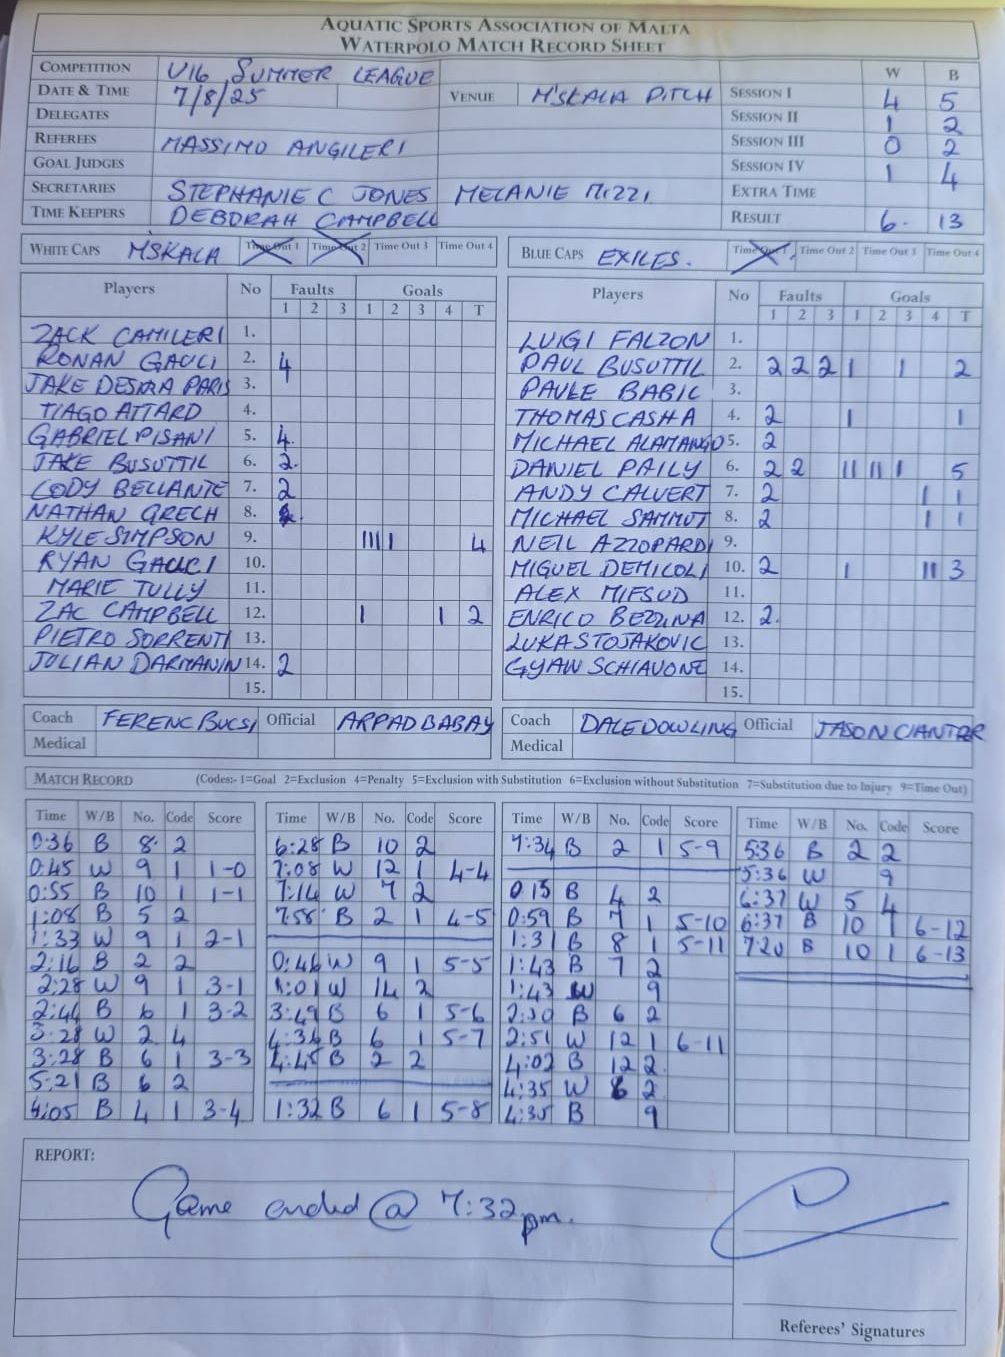 AQUATIC SPORTS ASSOCIATION OF MALTA
WATERPOLO MATCH RECORD SHEET
COMPETITION U16 SUMMER LEAGUE W B
DATE & TIME 7/8/25 VENUE M'SKALA PITCH SESSION I 4 5
DELEGATES SESSION II 1 2
REFEREES MASSIMO ANGILERI SESSION III 0 2
GOAL JUDGES SESSION IV 1 4
SECRETARIES STEPHANIE C JONES MELANIE MIZZI EXTRA TIME
TIME KEEPERS DEBORAH CAMPBELL RESULT 6. 13
WHITE CAPS MSKALA Time Out 1 Time Out 2 Time Out 3 Time Out 4 BLUE CAPS EXILES. Time Out 1 Time Out 2 Time Out 3 Time Out 4
Players No Faults Goals Players No Faults Goals
1 2 3 1 2 3 4 T 1 2 3 1 2 3 4 T
ZACK CAMILERI 1. LUIGI FALZON 1.
RONAN GAUCI 2. 4 PAUL BUSUTTIL 2. 2 2 2 1 1 2
JAKE DESIRA PARIS 3. PAVLE BABIC 3.
TIAGO ATTARD 4. THOMAS CASHA 4. 2 1 1
GABRIEL PISANI 5. 4. MICHAEL ALAMANGO 5. 2
JAKE BUSUTTIL 6. 2. DANIEL PAILY 6. 2 2 11 11 1 5
CODY BELLANTE 7. 2 ANDY CALVERT 7. 2 1 1
NATHAN GRECH 8. MICHAEL SAMMUT 8. 2 1 1
KYLE SIMPSON 9. 111 1 4 NEIL AZZOPARDI 9.
RYAN GAUCI 10. MIGUEL DEMICOLI 10. 2 1 11 3
MARIE TULLY 11. ALEX MIFSUD 11.
ZAC CAMPBELL 12. 1 1 2 ENRICO BEZZINA 12. 2.
PIETRO SORRENTI 13. LUKA STOJAKOVIC 13.
JULIAN DARMANIN 14. 2 GYAW SCHIAVONE 14.
15. 15.
Coach FERENC BUCSI Official ARPAD BABAY Coach DALE DOWLING Official JASON CIANTAR
Medical Medical
MATCH RECORD (Codes:- 1=Goal 2=Exclusion 4=Penalty 5=Exclusion with Substitution 6=Exclusion without Substitution 7=Substitution due to Injury 9=Time Out)
Time W/B No. Code Score
0:36 B 8 2
0:45 W 9 1 1-0
0:55 B 10 1 1-1
1:08 B 5 2
1:33 W 9 1 2-1
2:16 B 2 2
2:28 W 9 1 3-1
2:46 B 6 1 3-2
3:28 W 2 4
3:28 B 6 1 3-3
5:21 B 6 2
B 4 1 3-4
Time W/B No. Code Score
6:28 B 10 2
7:08 W 12 1 4-4
7:14 W 7 2
7:58 B 2 1 4-5
0:46 W 9 1 5-5
1:01 W 14 2
3:49 B 6 1 5-6
4:36 B 6 1 5-7
4:45 B 2 2
1:32 B 6 1 5-8
Time W/B No. Code Score
7:34 B 2 1 5-9
0:15 B 4 2
0:59 B 7 1 5-10
1:31 B 8 1 5-11
1:43 B 7 2
1:43 W 9
2:30 B 6 2
2:51 W 12 1 6-11
4:02 B 12 2
4:35 W 6 2
4:35 B 9
Time W/B No. Code Score
5:36 B 2 2
5:36 W 9
6:37 W 5 4
6:37 B 10 1 6-12
7:20 B 10 1 6-13
REPORT:
Game ended @ 7:32pm.
Referees' Signatures